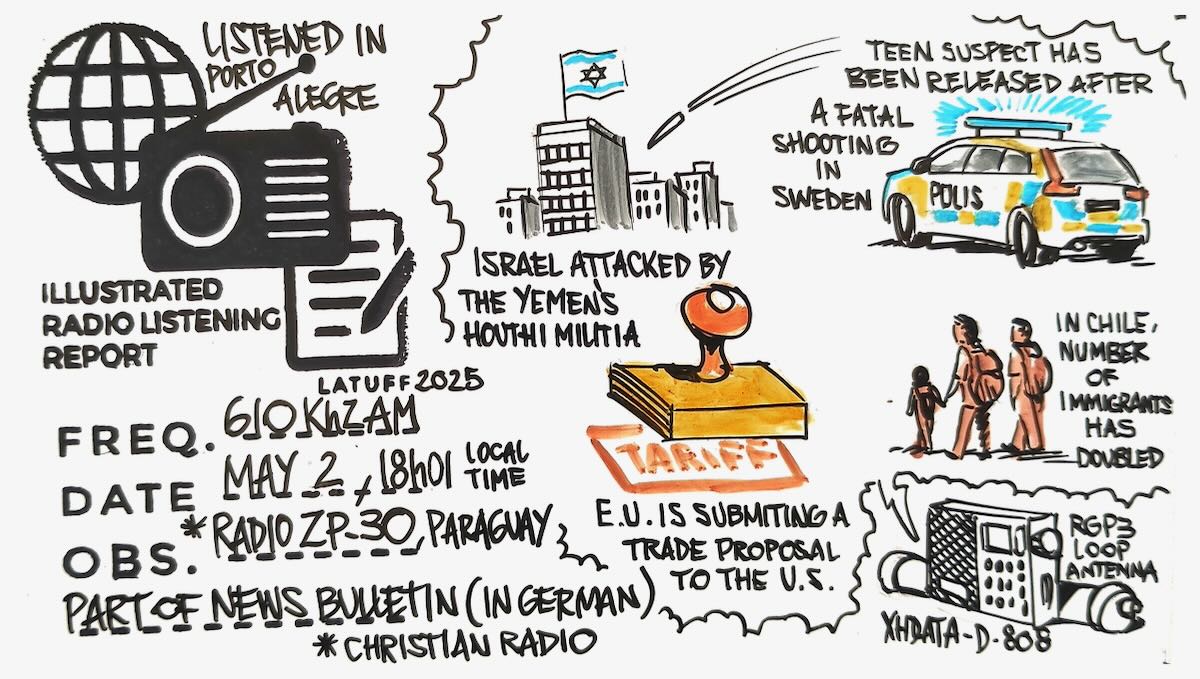 LISTENED IN
PORTO
ALEGRE
ILLUSTRATED
RADIO LISTENING
REPORT
LATUFF 2025
FREQ. 610 KhZ AM
DATE MAY 2, 18h01 LOCAL
TIME
OBS. * RADIO ZP-30, PARAGUAY,
PART OF NEWS BULLETIN (IN GERMAN)
* CHRISTIAN RADIO
ISRAEL ATTACKED BY
THE YEMEN'S
HOUTHI MILITIA
TEEN SUSPECT HAS
BEEN RELEASED AFTER
A FATAL
SHOOTING
IN
SWEDEN
POLIS
TARIFF
E.U. IS SUBMITING A
TRADE PROPOSAL
TO THE U.S.
IN CHILE,
NUMBER
OF
IMMIGRANTS
HAS
DOUBLED
RGP3
LOOP
ANTENNA
XHDATA-D-808